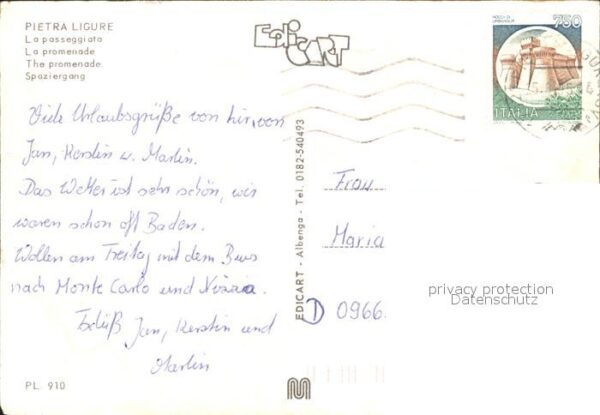 PIETRA LIGURE
La passeggiata
La promenade
The promenade
Spaziergang
EdiCART
750
ROCCA DI
URBISAGLIA
ITALIA
Viele Urlaubsgrüße von hier, von
Jan, Kerstin u. Martin.
Das Wetter ist sehr schön, wir
waren schon oft Baden.
Wollen am Freitag mit dem Bus
nach Monte Carlo und Nizza.
Tschüß Jan, Kerstin und
Martin
EDICART - Albenga - Tel. 0182-540493
Frau
Maria
D 0966
privacy protection
Datenschutz
PL 910